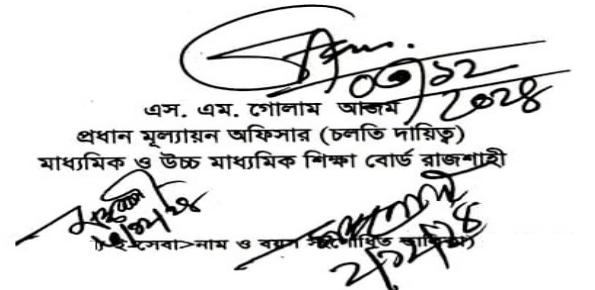 ০৩/১২
২০২৪
এস. এম. গোলাম আজম
প্রধান মূল্যায়ন অফিসার (চলতি দায়িত্ব)
মাধ্যমিক ও উচ্চ মাধ্যমিক শিক্ষা বোর্ড রাজশাহী
ই-সেবা>নাম ও বয়স সংশোধিত